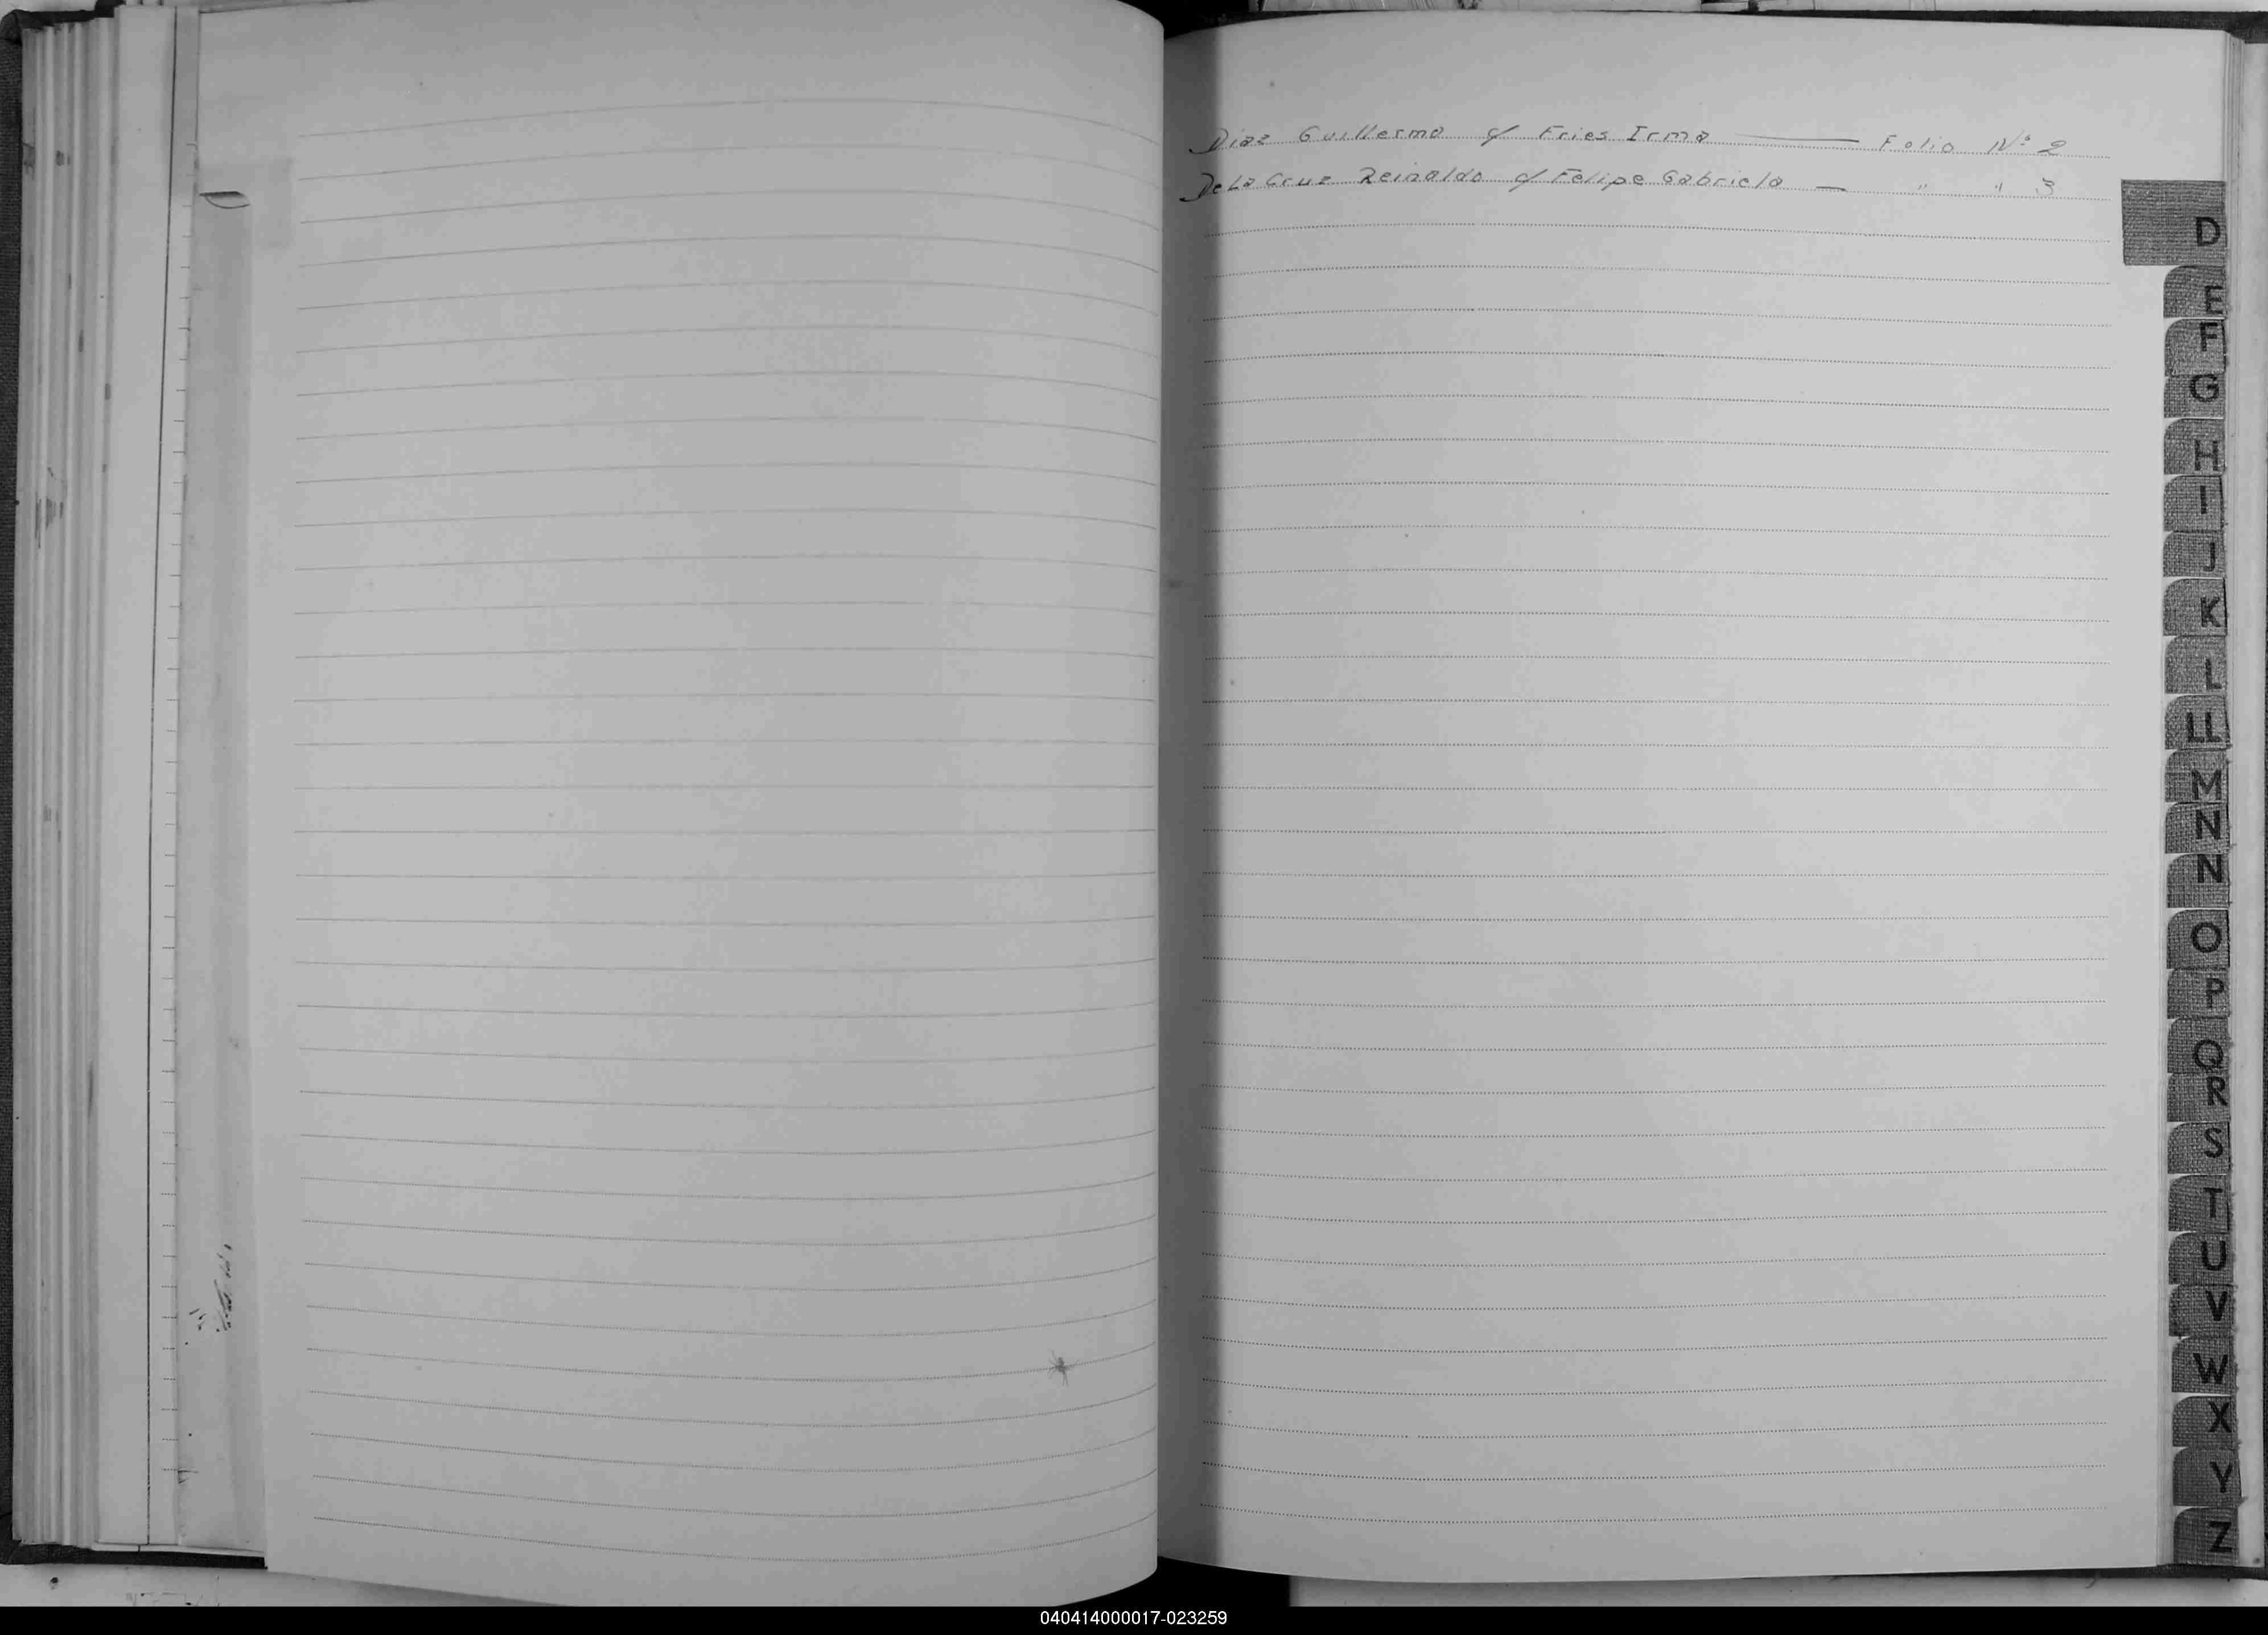 Diaz Guillermo c/ Fries Irma — Folio Nº 2
De La Cruz Reinaldo c/ Felipe Gabriela — " " 3
D
E
F
G
H
I
J
K
L
LL
M
N
N
O
P
Q
R
S
T
U
V
W
X
Y
Z
040414000017-023259